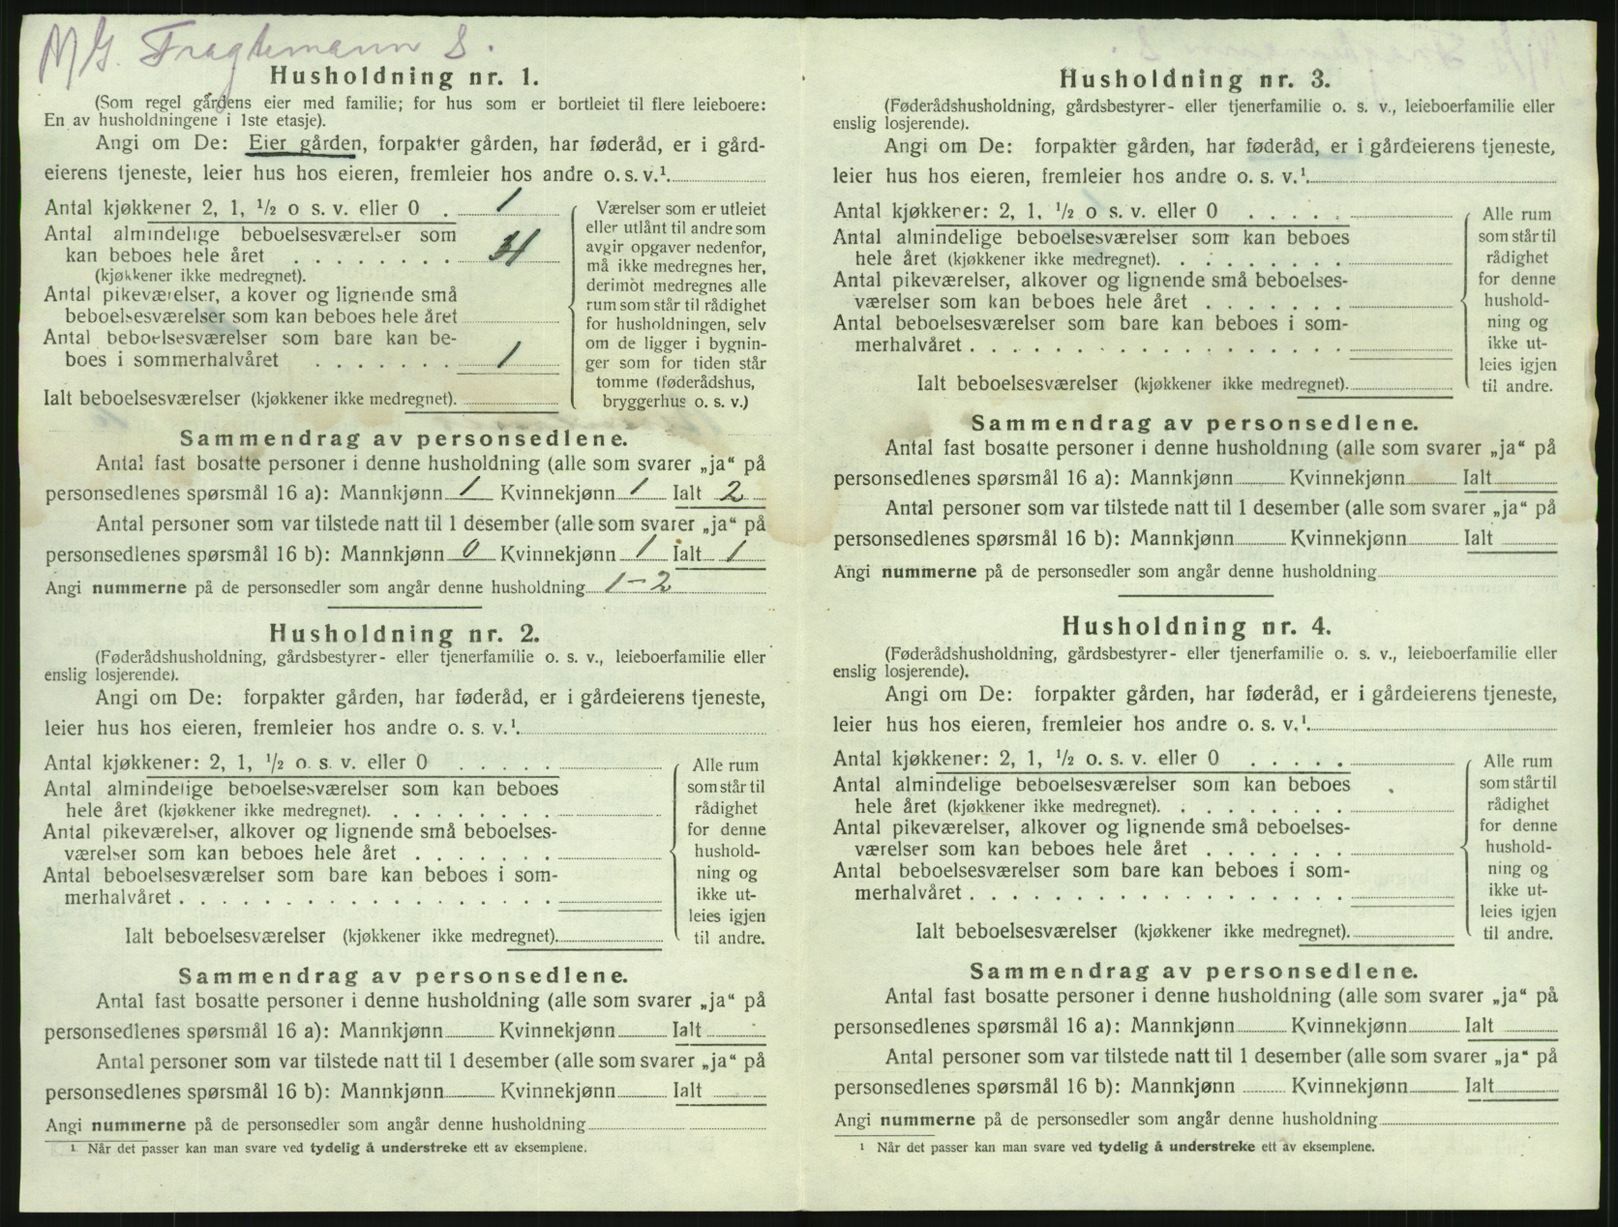 M/G. Fragtemann S.
Husholdning nr. 1.
(Som regel gårdens eier med familie; for hus som er bortleiet til flere leieboere:
En av husholdningene i 1ste etasje).
Angi om De: Eier gården, forpakter gården, har føderåd, er i gård-
eierens tjeneste, leier hus hos eieren, fremleier hos andre o. s. v.¹.
Antal kjøkkener 2, 1, ½ o s. v. eller 0 . 1
Antal almindelige beboelsesværelser som
kan beboes hele året . . . . . . . .
(kjøkkener ikke medregnet).
Antal pikeværelser, a kover og lignende små
beboelsesværelser som kan beboes hele året
Antal beboelsesværelser som bare kan be-
boes i sommerhalvåret . . . . . . . 1
Ialt beboelsesværelser (kjøkkener ikke medregnet).
Værelser som er utleiet
eller utlånt til andre som
avgir opgaver nedenfor,
må ikke medregnes her,
derimot medregnes alle
rum som står til rådighet
for husholdningen, selv
om de ligger i bygnin-
ger som for tiden står
tomme (føderådshus,
bryggerhus o. s. v.)
Sammendrag av personsedlene.
Antal fast bosatte personer i denne husholdning (alle som svarer „ja“ på
personsedlenes spørsmål 16 a): Mannkjønn 1 Kvinnekjønn 1 Ialt 2
Antal personer som var tilstede natt til 1 desember (alle som svarer „ja“ på
personsedlenes spørsmål 16 b): Mannkjønn 0 Kvinnekjønn 1 Ialt 1
Angi nummerne på de personsedler som angår denne husholdning 1-2
Husholdning nr. 2.
(Føderådshusholdning, gårdsbestyrer- eller tjenerfamilie o. s. v., leieboerfamilie eller
enslig losjerende).
Angi om De: forpakter gården, har føderåd, er i gårdeierens tjeneste,
leier hus hos eieren, fremleier hos andre o. s. v.¹.
Antal kjøkkener: 2, 1, ½ o. s. v. eller 0 . . . . .
Antal almindelige beboelsesværelser som kan beboes
hele året (kjøkkener ikke medregnet). . . . . . . . .
Antal pikeværelser, alkover og lignende små beboelses-
værelser som kan beboes hele året . . . . . . .
Antal beboelsesværelser som bare kan beboes i som-
merhalvåret . . . . . . . . . . . . . . . . . .
Ialt beboelsesværelser (kjøkkener ikke medregnet).
Alle rum
som står til
rådighet
for denne
hushold-
ning og
ikke ut-
leies igjen
til andre.
Sammendrag av personsedlene.
Antal fast bosatte personer i denne husholdning (alle som svarer „ja“ på
personsedlenes spørsmål 16 a): Mannkjønn Kvinnekjønn Ialt
Antal personer som var tilstede natt til 1 desember (alle som svarer „ja“ på
personsedlenes spørsmål 16 b): Mannkjønn Kvinnekjønn Ialt
Angi nummerne på de personsedler som angår denne husholdning
¹ Når det passer kan man svare ved tydelig å understreke ett av eksemplene.
Husholdning nr. 3.
(Føderådshusholdning, gårdsbestyrer- eller tjenerfamilie o. s. v., leieboerfamilie eller
enslig losjerende).
Angi om De: forpakter gården, har føderåd, er i gårdeierens tjeneste,
leier hus hos eieren, fremleier hos andre o. s. v.¹.
Antal kjøkkener: 2, 1, ½ o s. v. eller 0 . . . . .
Antal almindelige beboelsesværelser som kan beboes
hele året (kjøkkener ikke medregnet). . . . . . . . .
Antal pikeværelser, alkover og lignende små beboelses-
værelser som kan beboes hele året . . . . . . .
Antal beboelsesværelser som bare kan beboes i som-
merhalvåret . . . . . . . . . . . . . . . . . .
Ialt beboelsesværelser (kjøkkener ikke medregnet).
Alle rum
som står til
rådighet
for denne
hushold-
ning og
ikke ut-
leies igjen
til andre.
Sammendrag av personsedlene.
Antal fast bosatte personer i denne husholdning (alle som svarer „ja“ på
personsedlenes spørsmål 16 a): Mannkjønn Kvinnekjønn Ialt
Antal personer som var tilstede natt til 1 desember (alle som svarer „ja“ på
personsedlenes spørsmål 16 b): Mannkjønn Kvinnekjønn Ialt
Angi nummerne på de personsedler som angår denne husholdning
Husholdning nr. 4.
(Føderådshusholdning, gårdsbestyrer- eller tjenerfamilie o. s. v., leieboerfamilie eller
enslig losjerende).
Angi om De: forpakter gården, har føderåd, er i gårdeierens tjeneste,
leier hus hos eieren, fremleier hos andre o. s. v.¹.
Antal kjøkkener: 2, 1, ½ o. s. v. eller 0 . . . . .
Antal almindelige beboelsesværelser som kan beboes
hele året (kjøkkener ikke medregnet). . . . . . . . .
Antal pikeværelser, alkover og lignende små beboelses-
værelser som kan beboes hele året . . . . . . .
Antal beboelsesværelser som bare kan beboes i som-
merhalvåret . . . . . . . . . . . . . . . . . .
Ialt beboelsesværelser (kjøkkener ikke medregnet).
Alle rum
som står til
rådighet
for denne
hushold-
ning og
ikke ut-
leies igjen
til andre.
Sammendrag av personsedlene.
Antal fast bosatte personer i denne husholdning (alle som svarer „ja“ på
personsedlenes spørsmål 16 a): Mannkjønn Kvinnekjønn Ialt
Antal personer som var tilstede natt til 1 desember (alle som svarer „ja“ på
personsedlenes spørsmål 16 b): Mannkjønn Kvinnekjønn Ialt
Angi nummerne på de personsedler som angår denne husholdning
¹ Når det passer kan man svare ved tydelig å understreke ett av eksemplene.